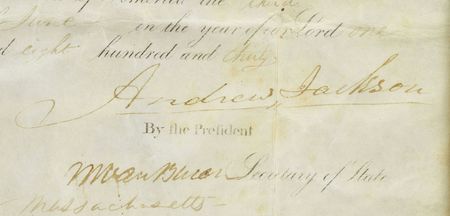 the third
June in the year of our Lord one
eight hundred and thirty
Andrew Jackson
By the President
M Van Buren Secretary of State
Massachusetts